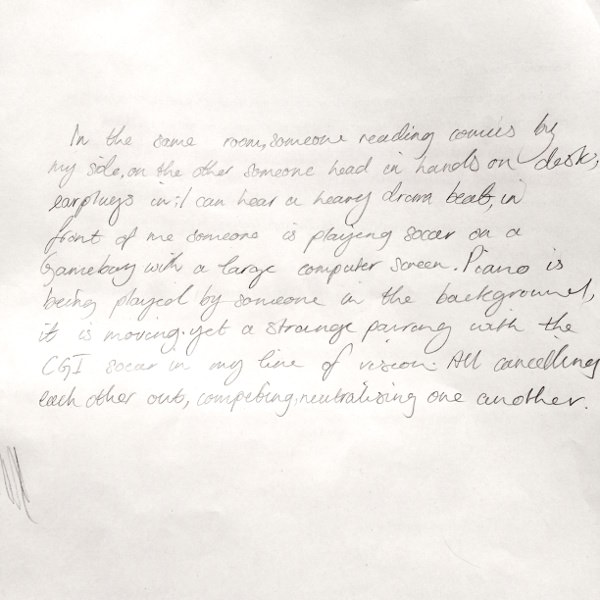 In the same room, someone reading comics by
my side, on the other someone head in hands on desk,
earplugs in; I can hear a heavy drum beat, in
front of me someone is playing soccer on a
Gameboy with a large computer screen. Piano is
being played by someone in the background,
it is moving. yet a strange pairing with the
CGI soccer in my line of vision. All cancelling
each other out, competing, neutralising one another.